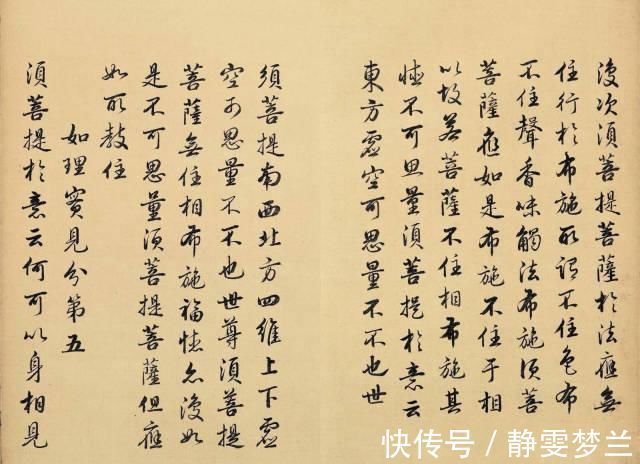 復次須菩提菩薩於法應無
住行於布施所謂不住色布
不住聲香味觸法布施須菩
菩薩應如是布施不住于相
以故若菩薩不住相布施其
德不可思量須菩提於意云
東方虛空可思量不不也世
須菩提南西北方四維上下虛
空可思量不不也世尊須菩提
菩薩無住相布施福德亦復如
是不可思量須菩提菩薩但應
如所教住
如理實見分第五
須菩提於意云何可以身相見
快传号/静雯梦兰